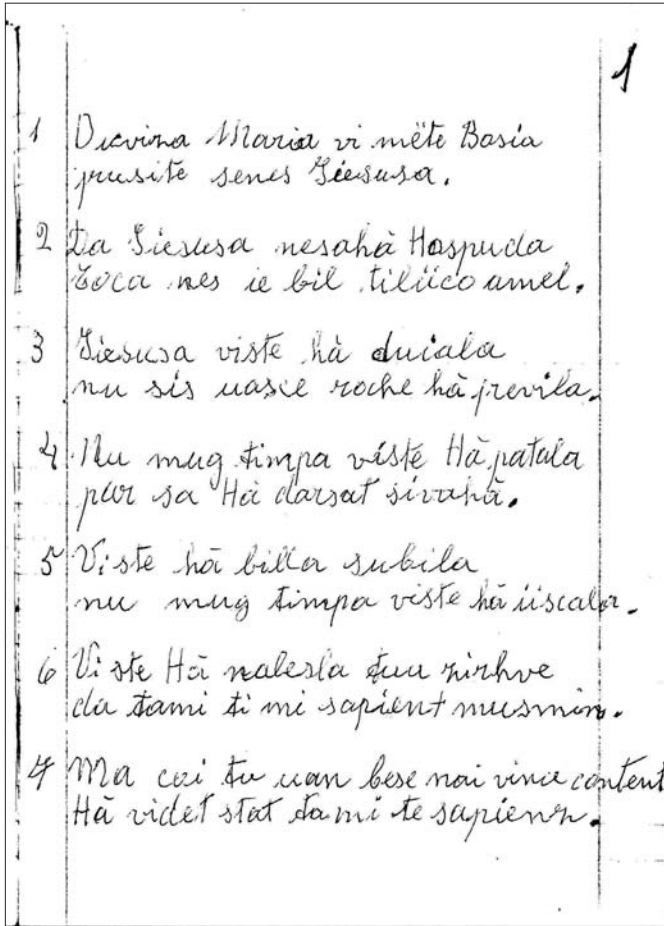 1
1 Dicvina Maria vi mëte Bosia
prusite senes Giesusa.
2 Da Giesusa nesahà Hospuda
Zoca nes ie bil tilüco amel.
3 Giesusa viste hà duiala
nu sis uasce roche hà previla.
4 Nu mug timpa viste Hà patala
pur sa Hà darsat sivahà.
5 Viste hà billa subila
nu mug timpa viste hà üscala.
6 Vi ste Hà nalesla tuu zirhve
da tami ti mi sapient musmin.
7 Ma cai tu uan bese nai vince content
Hà videt stat tami te sapienz.